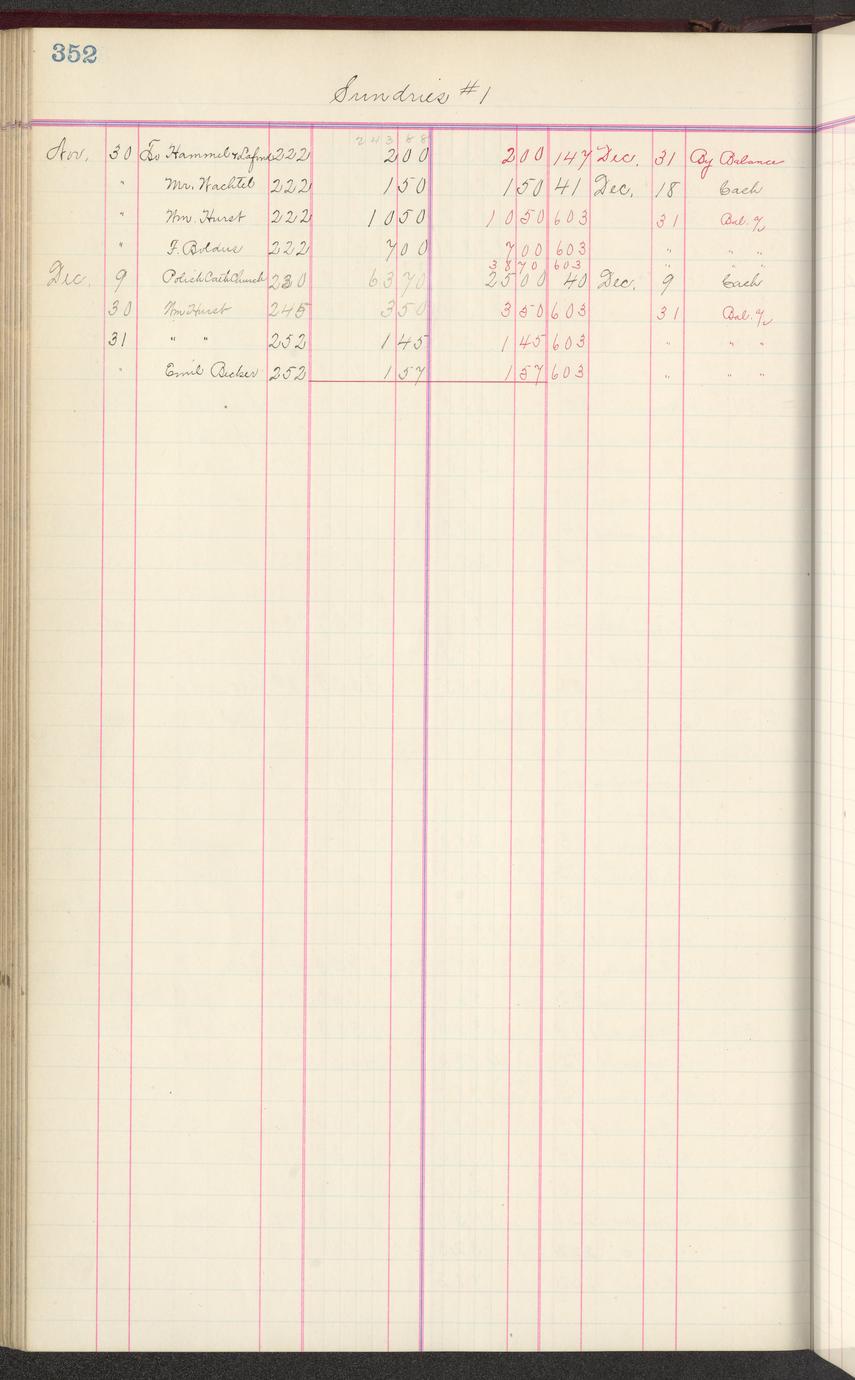 352
Sundries #1
243 88
Nov. 30 To Hammel & 222 2 00 2 00 147 Dec. 31 By Balance
" Mr. Wachtel 222 1 50 1 50 41 Dec. 18 Cash
" Wm. Hurst 222 10 50 10 50 603 31 Bal. %
" F. Boldus 222 7 00 7 00 603 " " "
38 70 603 " " "
Dec. 9 Polish Cath Church 230 63 70 25 00 40 Dec. 9 Cash
30 Wm Hurst 245 3 50 3 50 603 31 Bal. %
31 " " 252 1 45 1 45 603 " " "
" Emil Becker 252 1 57 1 57 603 " " "